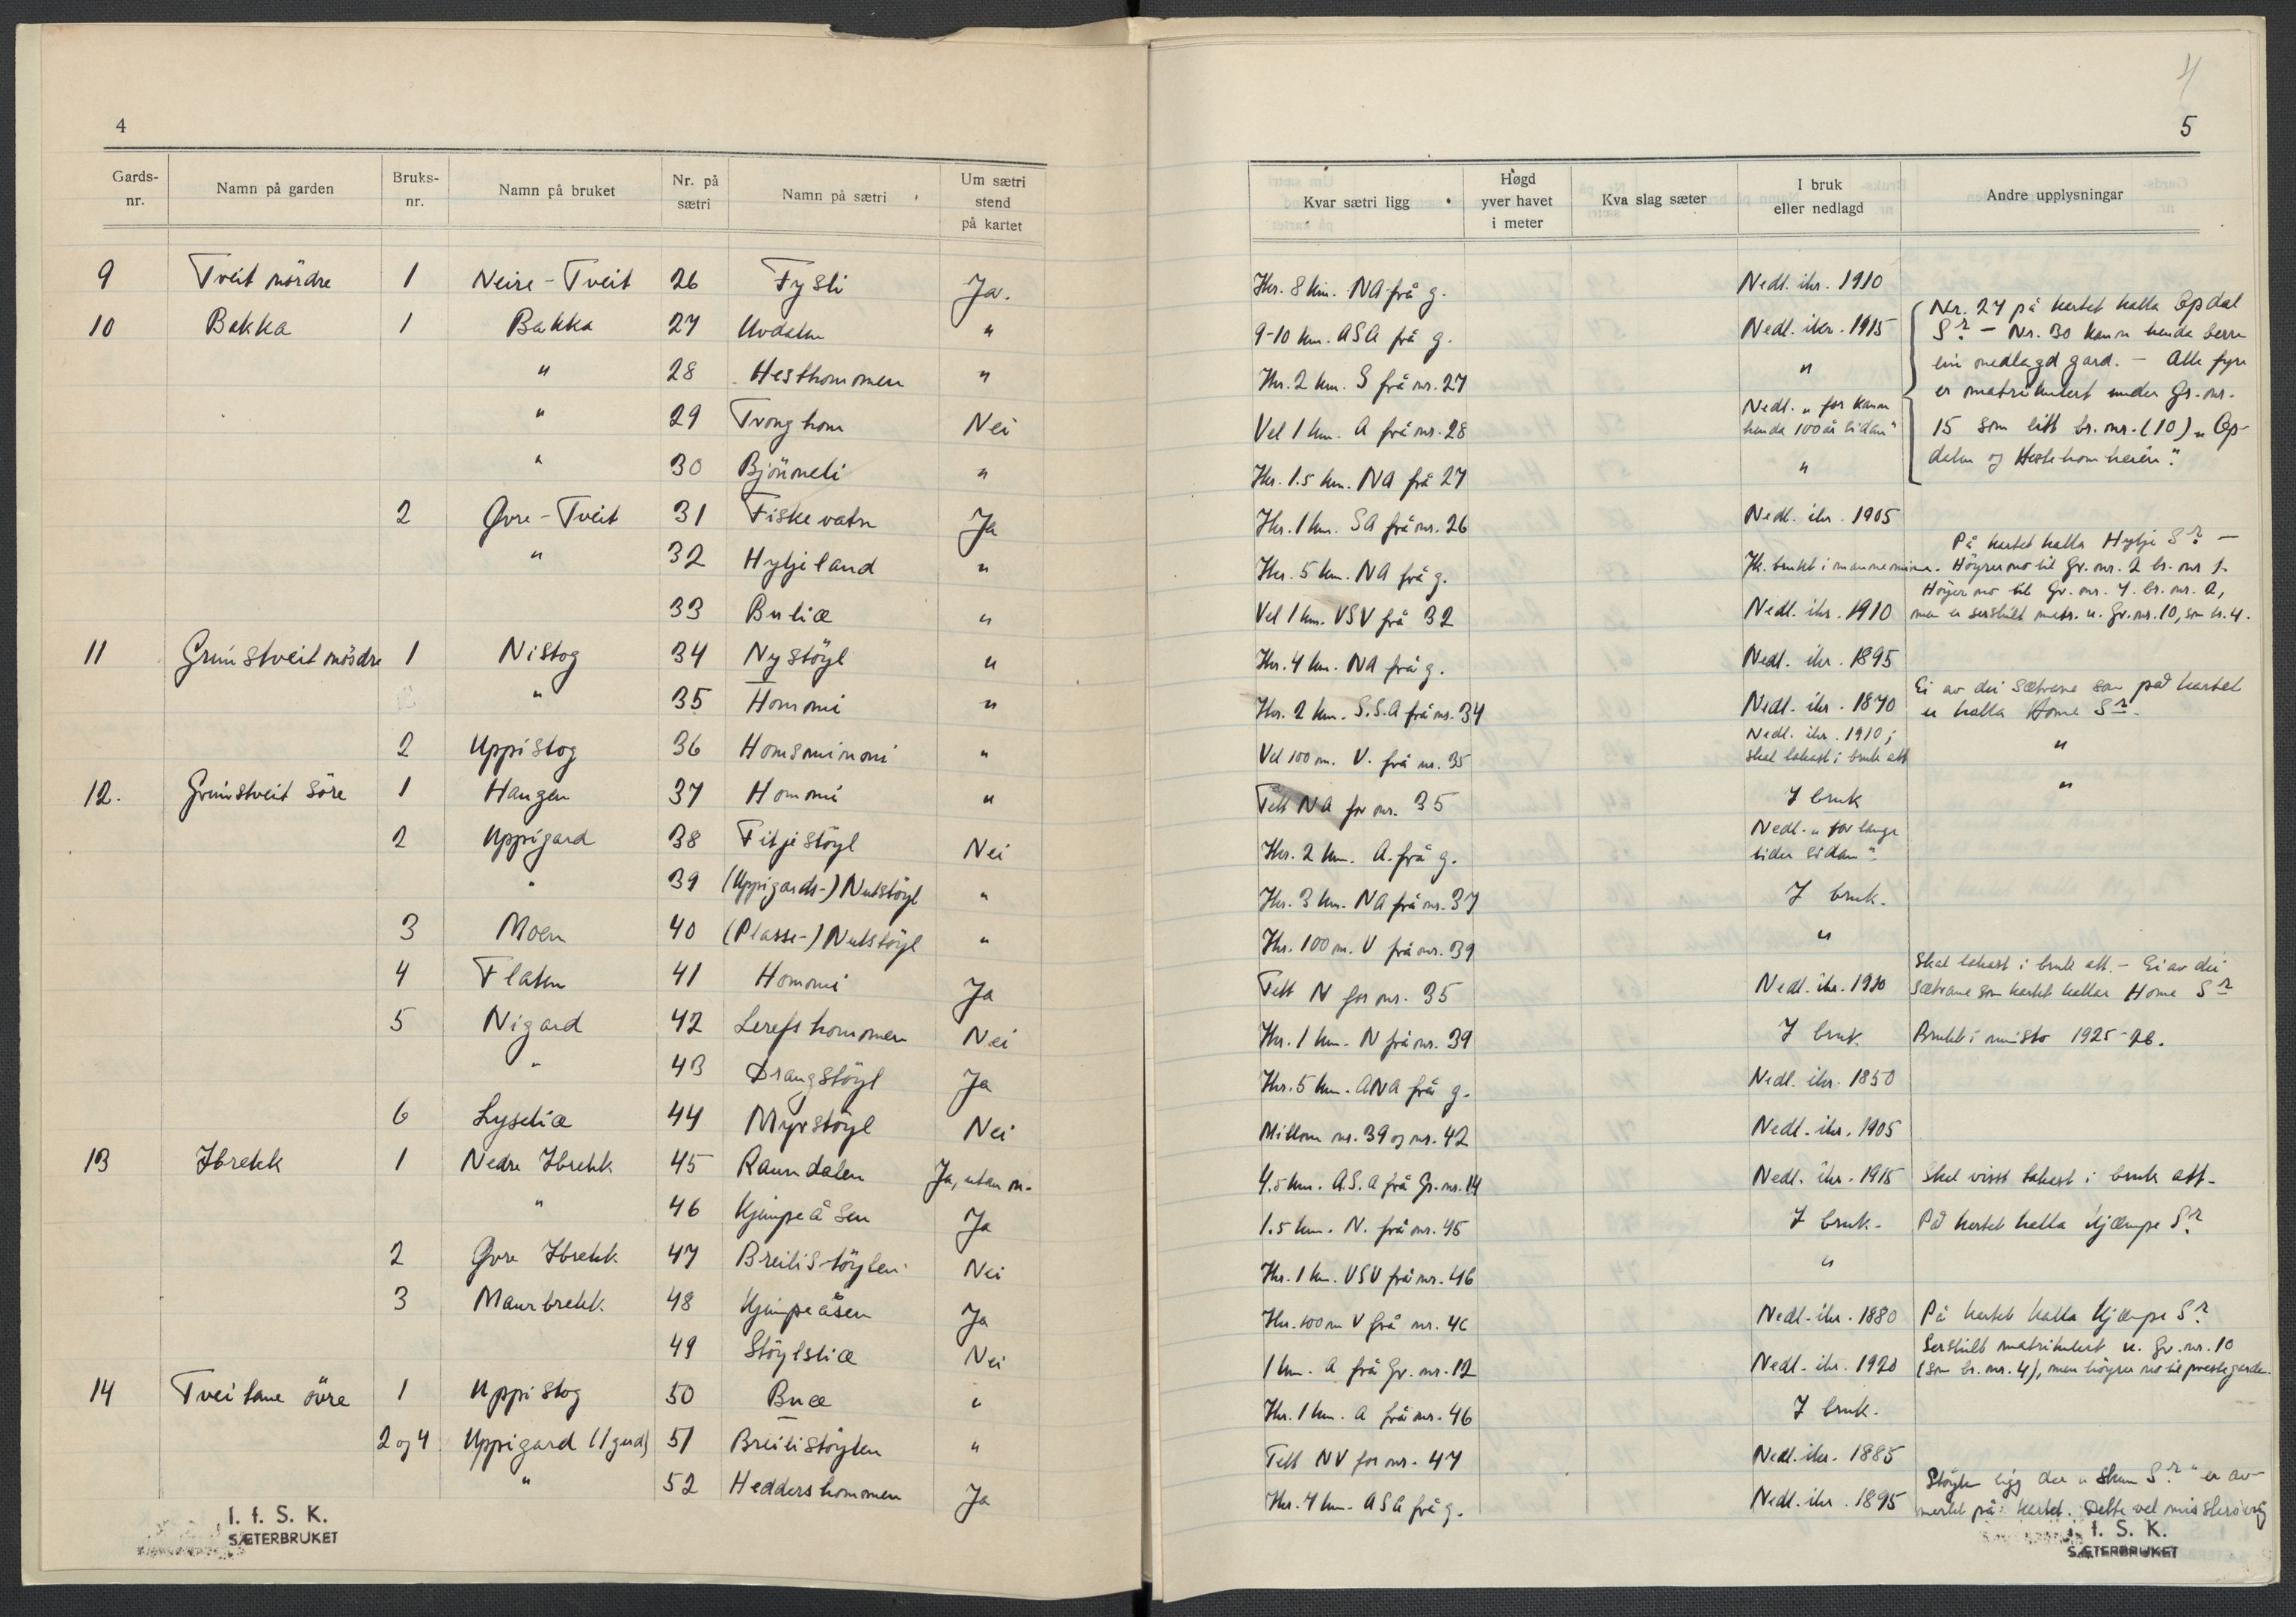 4
Gards-nr. Namn på garden Bruks-nr. Namn på bruket Nr. på sætri Namn på sætri Um sætri stend på kartet
9 Tveit nördre 1 Neire-Tveit 26 Fysli Ja.
10 Bakka 1 Bakka 27 Uvdaln "
" 28 Hesthommen "
" 29 Tronghom Nei
" 30 Bjönneli "
2 Øvre-Tveit 31 Fiskevatn Ja
" 32 Hyljeland "
33 Buliæ "
11 Grimstveit nördre 1 Nistog 34 Nystöyl "
" 35 Hommi "
2 Uppistog 36 Homsminni "
12. Grimstveit söre 1 Haugen 37 Hommi "
2 Uppigard 38 Fitjestöyl Nei
" 39 (Uppigards-) Nutstöyl "
3 Moen 40 (Plasse-) Nutstöyl "
4 Flatn 41 Hommi Ja
5 Nigard 42 Lerefshommen Nei
" 43 Drangstöyl Ja
6 Lyseliæ 44 Myrstöyl Nei
13 Ibrekk 1 Nedre Ibrekk 45 Raundalen Ja, utan n.
" 46 Kjimpeåsen Ja
2 Øvre Ibrekk 47 Breilistöylen Nei
3 Maurbrekk 48 Kjimpeåsen Ja
49 Stöylsliæ Nei
14 Tveitane övre 1 Uppistog 50 Buæ "
2 og 4 Uppigard (1 gard) 51 Breilistöylen "
" 52 Heddershommen Ja
I. f. S. K.
SÆTERBRUKET
4
5
Kvar sætri ligg Høgd yver havet i meter Kva slag sæter I bruk eller nedlagd Andre upplysningar
Ikr. 8 km. NA frå g. Nedl. ikr. 1910
9-10 km. ASA frå g. Nedl. ikr. 1915
Nr. 27 på kartet kalla Opdal
Sr. - Nr. 30 kann henda berre
Ikr. 2 km. S frå nr. 27 "
ein nedlagd gard. - Alle fyre
er matrikulert under Gr. nr.
Vel 1 km. A frå nr. 28 Nedl. "for kann henda 100 år sidan"
15 som litt br. nr. (10) "Op-
daln og Hestehomheien".
Ikr. 1.5 km. NA frå 27 "
Ikr. 1 km. SA frå nr. 26 Nedl. ikr. 1905
På kartet kalla Hylje Sr. -
Ikr. 5 km. NA frå g. Ik. brukt i manneminne. Höyrer no til Gr. nr. 2 br. nr 1.
Höyrer no til Gr. nr. 7. br. nr. 2,
Vel 1 km. VSV frå 32 Nedl. ikr. 1910 men er serskilt matr. u. Gr. nr. 10, som br. 4.
Ikr. 4 km. NA frå g. Nedl. ikr. 1895
Ikr. 2 km. S.S.A frå nr. 34 Nedl. ikr. 1870
Ei av dei sætrane som på kartet
er kalla Home Sr.
Vel 100 m. V. frå nr. 35 Nedl. ikr. 1910; skal takast i bruk att "
Tett NA for nr. 35 I bruk "
Ikr. 2 km. A. frå g. Nedl. "for lange tider sidan".
Ikr. 3 km. NA frå nr. 37 I bruk.
Ikr. 100 m. V frå nr. 39 "
Tett N for nr. 35 Nedl. ikr. 1920
Skal takast i bruk att. - Ei av dei
sætrane som kartet kallar Home Sr
Ikr. 1 km. N frå nr. 39 I bruk. Brukt i minsto 1925-26.
Ikr. 5 km. ANA frå g. Nedl. ikr. 1850
Millom nr. 39 og nr. 42 Nedl. ikr. 1905
4.5 km. A.S.A frå Gr. nr. 14 Nedl. ikr. 1915 Skal visst takast i bruk att.
1.5 km. N. frå nr. 45 I bruk. På kartet kalla Kjæmpe Sr.
Ikr. 1 km. VSV frå nr. 46 "
Ikr. 100 m V frå nr. 46 Nedl. ikr. 1880 På kartet kalla Kjæmpe Sr.
1 km. A frå Gr. nr. 12 Nedl. ikr. 1920
Serskilt matrikulert u. Gr. nr. 10
(som br. nr. 4), men höyrer no til prestegarden.
Ikr. 1 km. A frå nr. 46 I bruk.
Tett NV for nr. 47 Nedl. ikr. 1885
Ikr. 4 km. ASA frå g. Nedl. ikr. 1895
Stöylen ligg der "Skum Sr." er av-
merkt på kartet. Dette vel misskriving
I. f. S. K.
SÆTERBRUKET